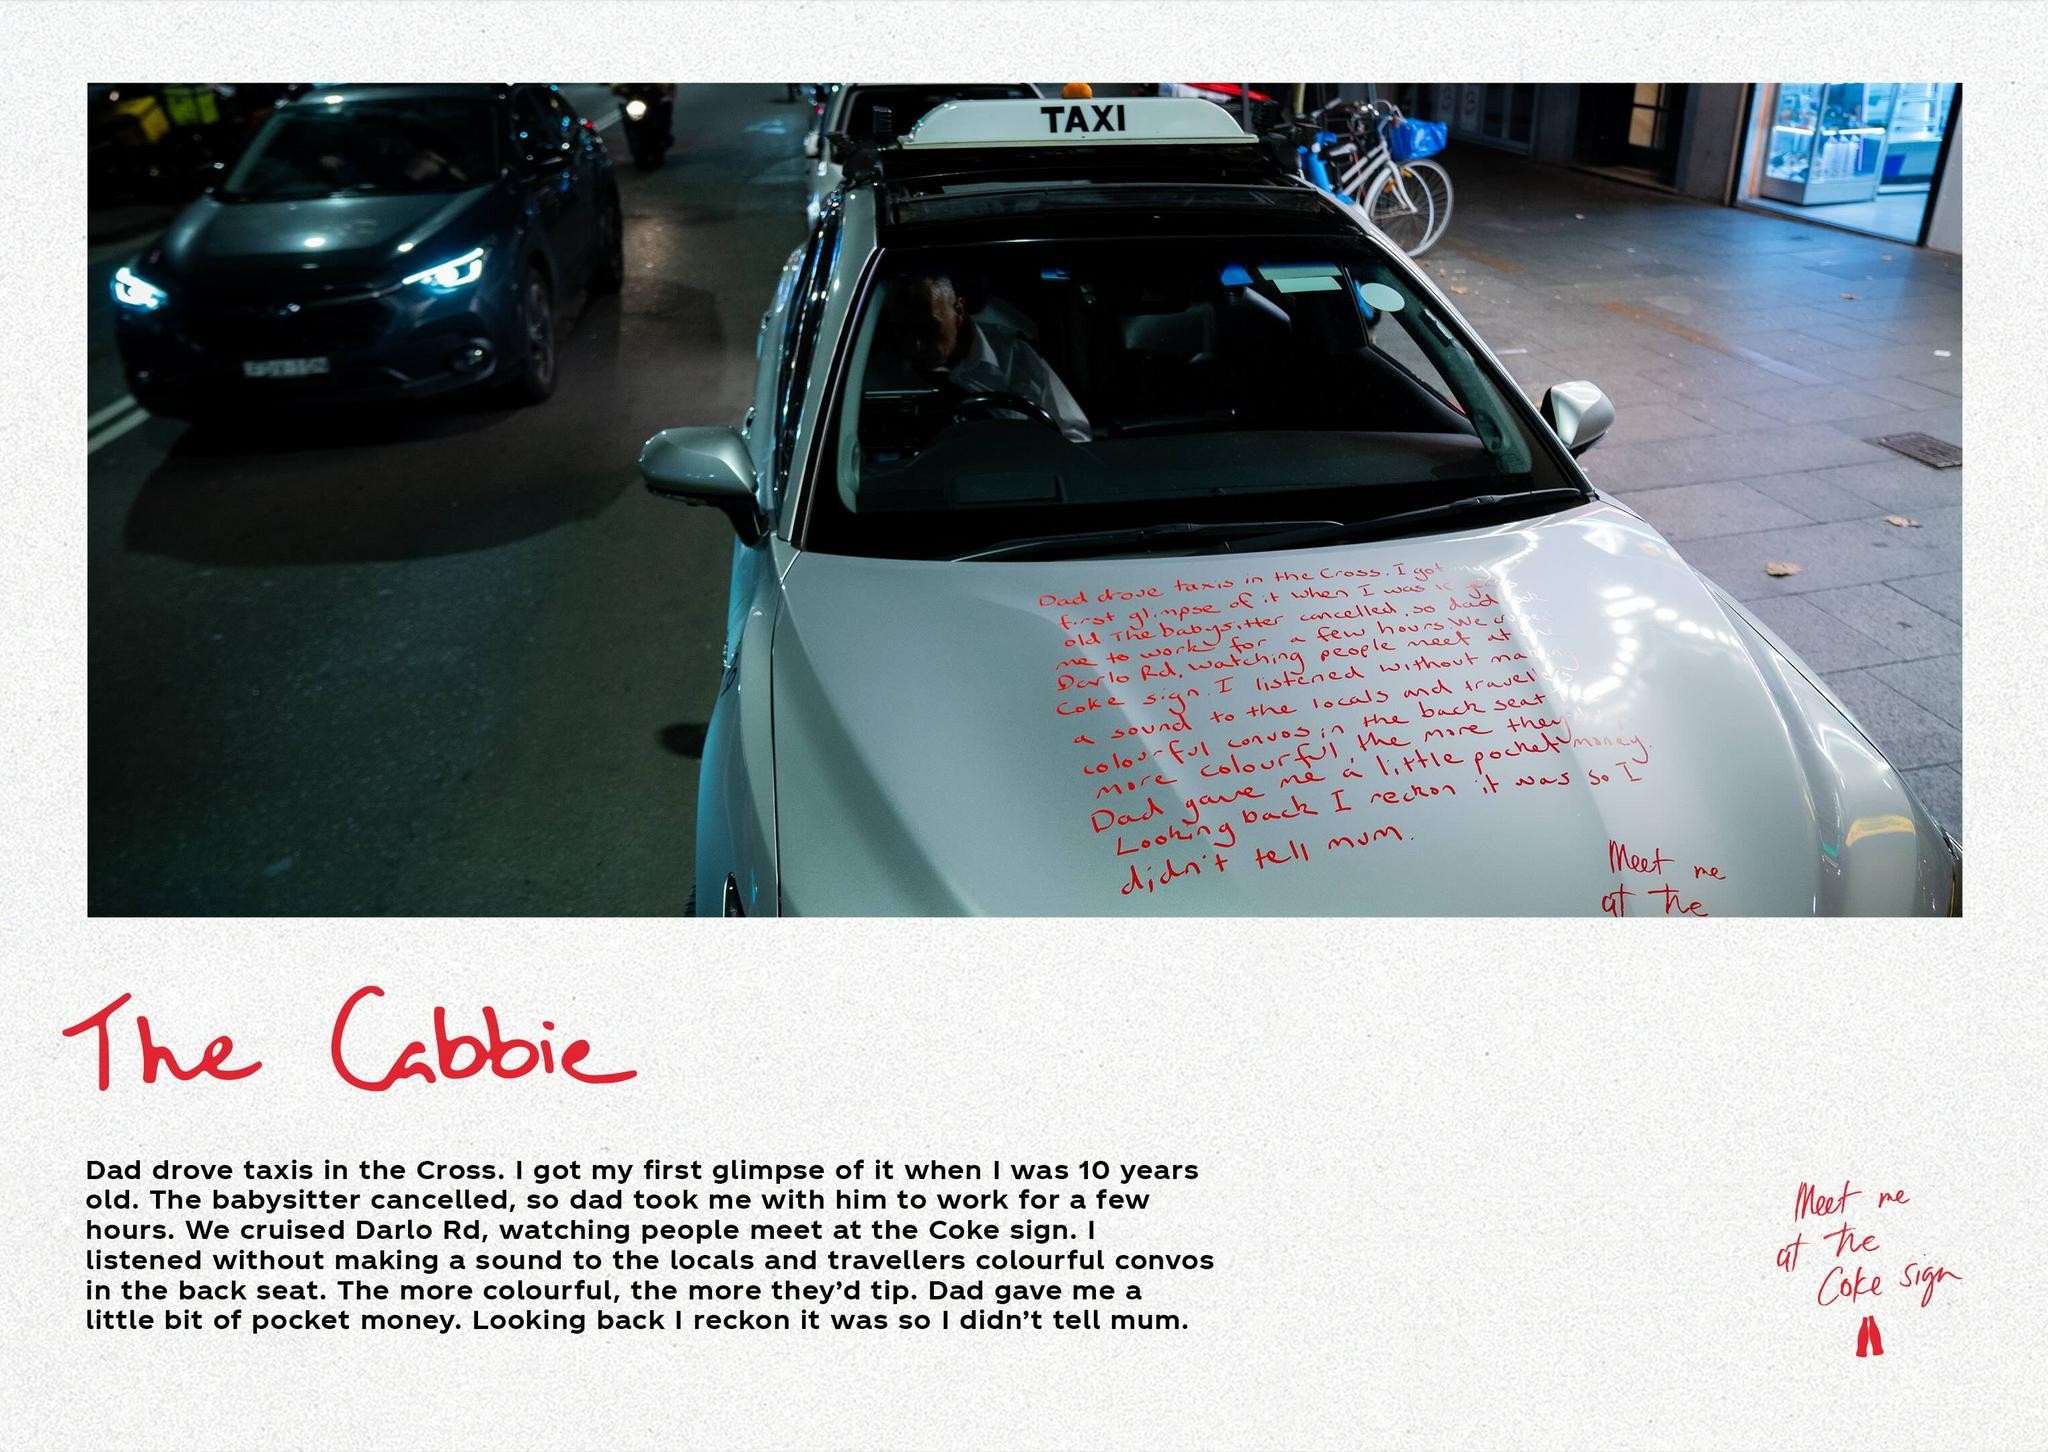 TAXI
Dad drove taxis in the Cross. I got my
first glimpse of it when I was years
old The babysitter cancelled, so dad
me to work for a few hours. We
Darlo Rd, watching people meet at
Coke sign. I listened without
a sound to the locals and
colourful convos in the back seat
more colourful, the more they
Dad gave me a little pocket money.
Looking back I reckon it was so I
didn't tell mum.
Meet me
at the
The Cabbie
Dad drove taxis in the Cross. I got my first glimpse of it when I was 10 years
old. The babysitter cancelled, so dad took me with him to work for a few
hours. We cruised Darlo Rd, watching people meet at the Coke sign. I
listened without making a sound to the locals and travellers colourful convos
in the back seat. The more colourful, the more they'd tip. Dad gave me a
little bit of pocket money. Looking back I reckon it was so I didn't tell mum.
Meet me
at the
Coke sign